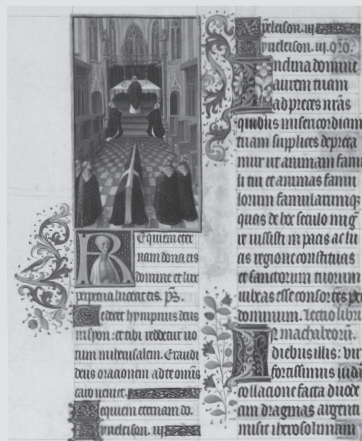 Requiem eter
nam dona eis
domine et lux
perpetua luceat eis. ps̄.
Te decet hympnus deus
in syon: et tibi reddetur uo
tum in iherusalem. Exaudi
deus orationem ad te omnis
caro ueniet.
Requiem eternam do.
kyrieleison. iij
Xpeleison. iij
kyrieleison. iij. oro.
Inclina domine
aurem tuam
ad preces nr̄as
quibus misericordiam
tuam supplices depreca
mur ut animam famu
li tui et animas famu
lorum famularumq;
quas de hoc seculo mig
re iussisti in pacis ac lu
cis regione constituas
et sanctorum tuorum
iubeas esse consortes per
dominum. Lectio libri
machabeorū.
In diebus illis: vir
fortissimus iudas
collacione facta duode
cim dragmas argenti
misit iherosolimam